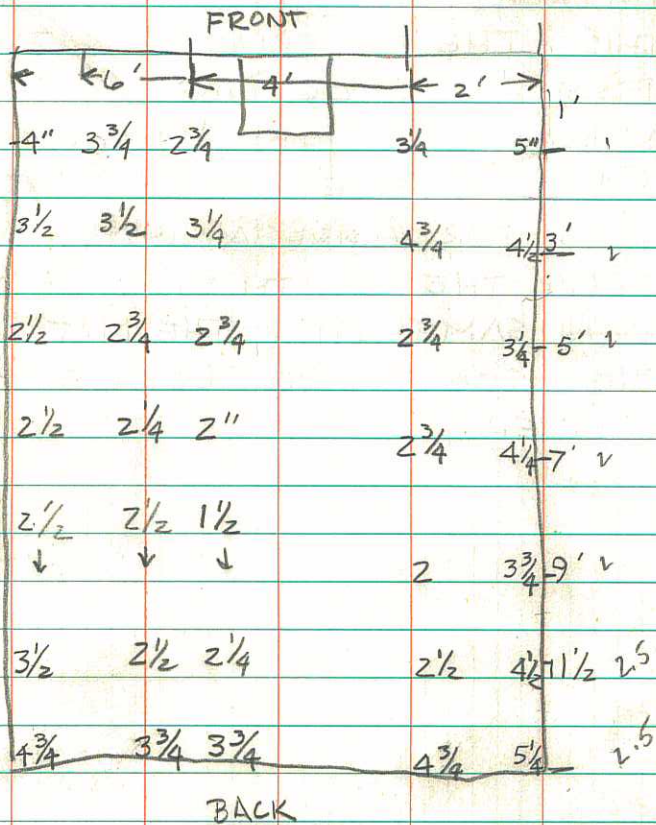 FRONT
6' 4' 2'
1'
4" 3 3/4 2 3/4 3 1/4 5"
3 1/2 3 1/2 3 1/4 4 3/4 4 1/2 3'
2 1/2 2 3/4 2 3/4 2 3/4 3 1/4 5'
2 1/2 2 1/4 2" 2 3/4 4 1/4 7'
2 1/2 2 1/2 1 1/2
2 3 3/4 9'
3 1/2 2 1/2 2 1/4 2 1/2 4 1/2 11 1/2 2.5
4 3/4 3 3/4 3 3/4 4 3/4 5 1/4 2.5
BACK